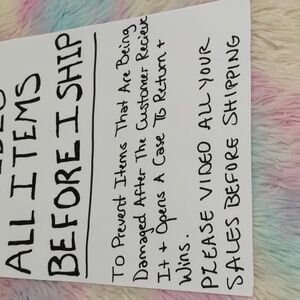 ALL ITEMS
BEFORE I SHIP
To Prevent Items That Are Being
Damaged After The Customer Recieve
It + Opens A Case To Return +
Wins.
PLEASE VIDEO ALL YOUR
SALES BEFORE SHIPPING